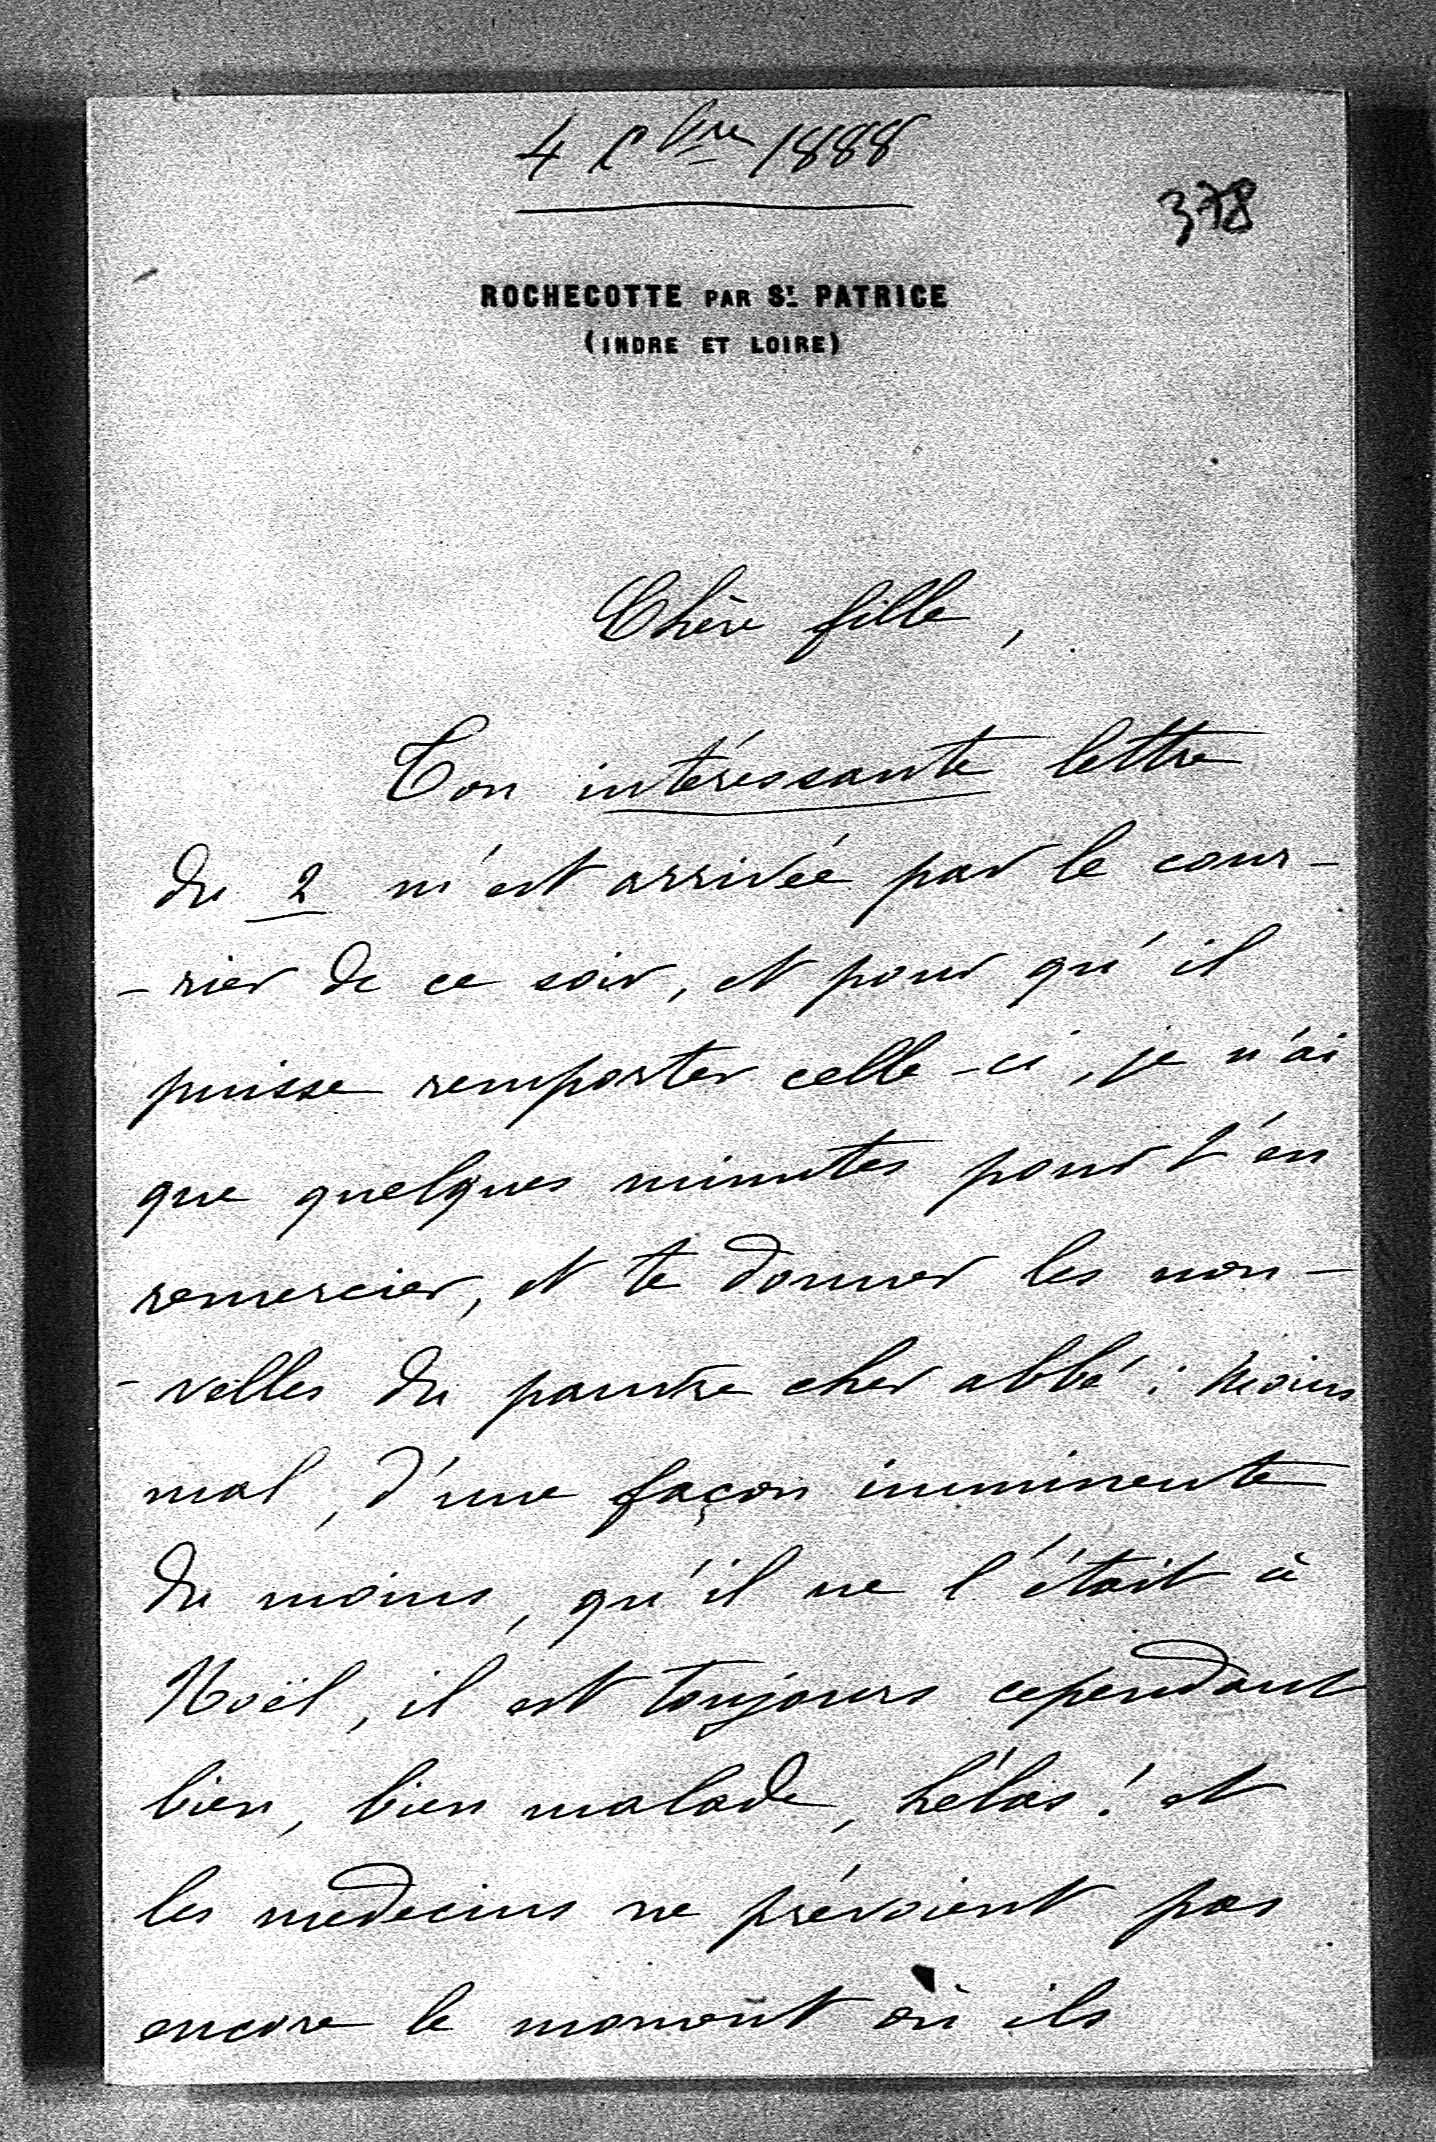 4 Xbre 1888
378
ROCHECOTTE PAR ST PATRICE
(INDRE ET LOIRE)
Chère fille,
Ton intéressante lettre
du 2 m'est arrivée par le cour-
-rier de ce soir, et pour qu'il
puisse remporter celle-ci, je n'ai
que quelques minutes pour t'en
remercier, et te donner les nou-
-velles du pauvre cher abbé: Moins
mal, d'une façon imminente
du moins, qu'il ne l'était à
Noël, il est toujours cependant
bien, bien malade, hélas! et
les medecins ne prévoient pas
encore le moment où ils